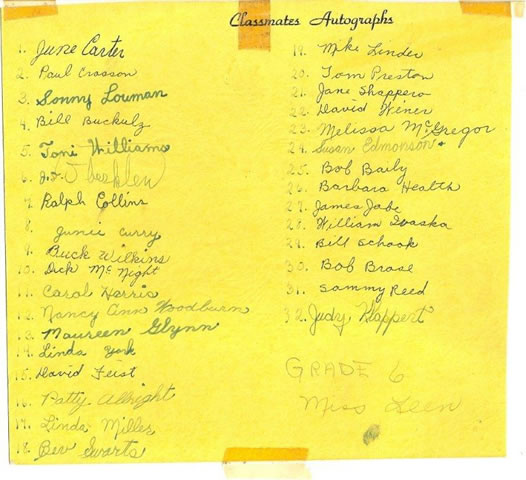 Classmates Autographs
1. June Carter
2. Paul Crosson
3. Sonny Louman
4. Bill Buckulz
5. Toni Williams
6.
7. Ralph Collins
8. Junie Curry
9. Buck Wilkins
10. Dick McNight
11. Carol Harris
12. Nancy Ann Woodburn
13. Maureen Glynn
14. Linda York
15. David Feist
16. Patty Albright
17. Linda Miller
18. Bev Swarts
19. Mike Linder
20. Tom Preston
21. Jane Shappero
22. David Winer
23. Melissa McGregor
24. Susan Edmonson
25. Bob Baily
26. Barbara Health
27. James Jabe
28. William
29. Bill Schook
30. Bob Brase
31. Sammy Reed
32. Judy Klappert
GRADE 6
Miss Leen